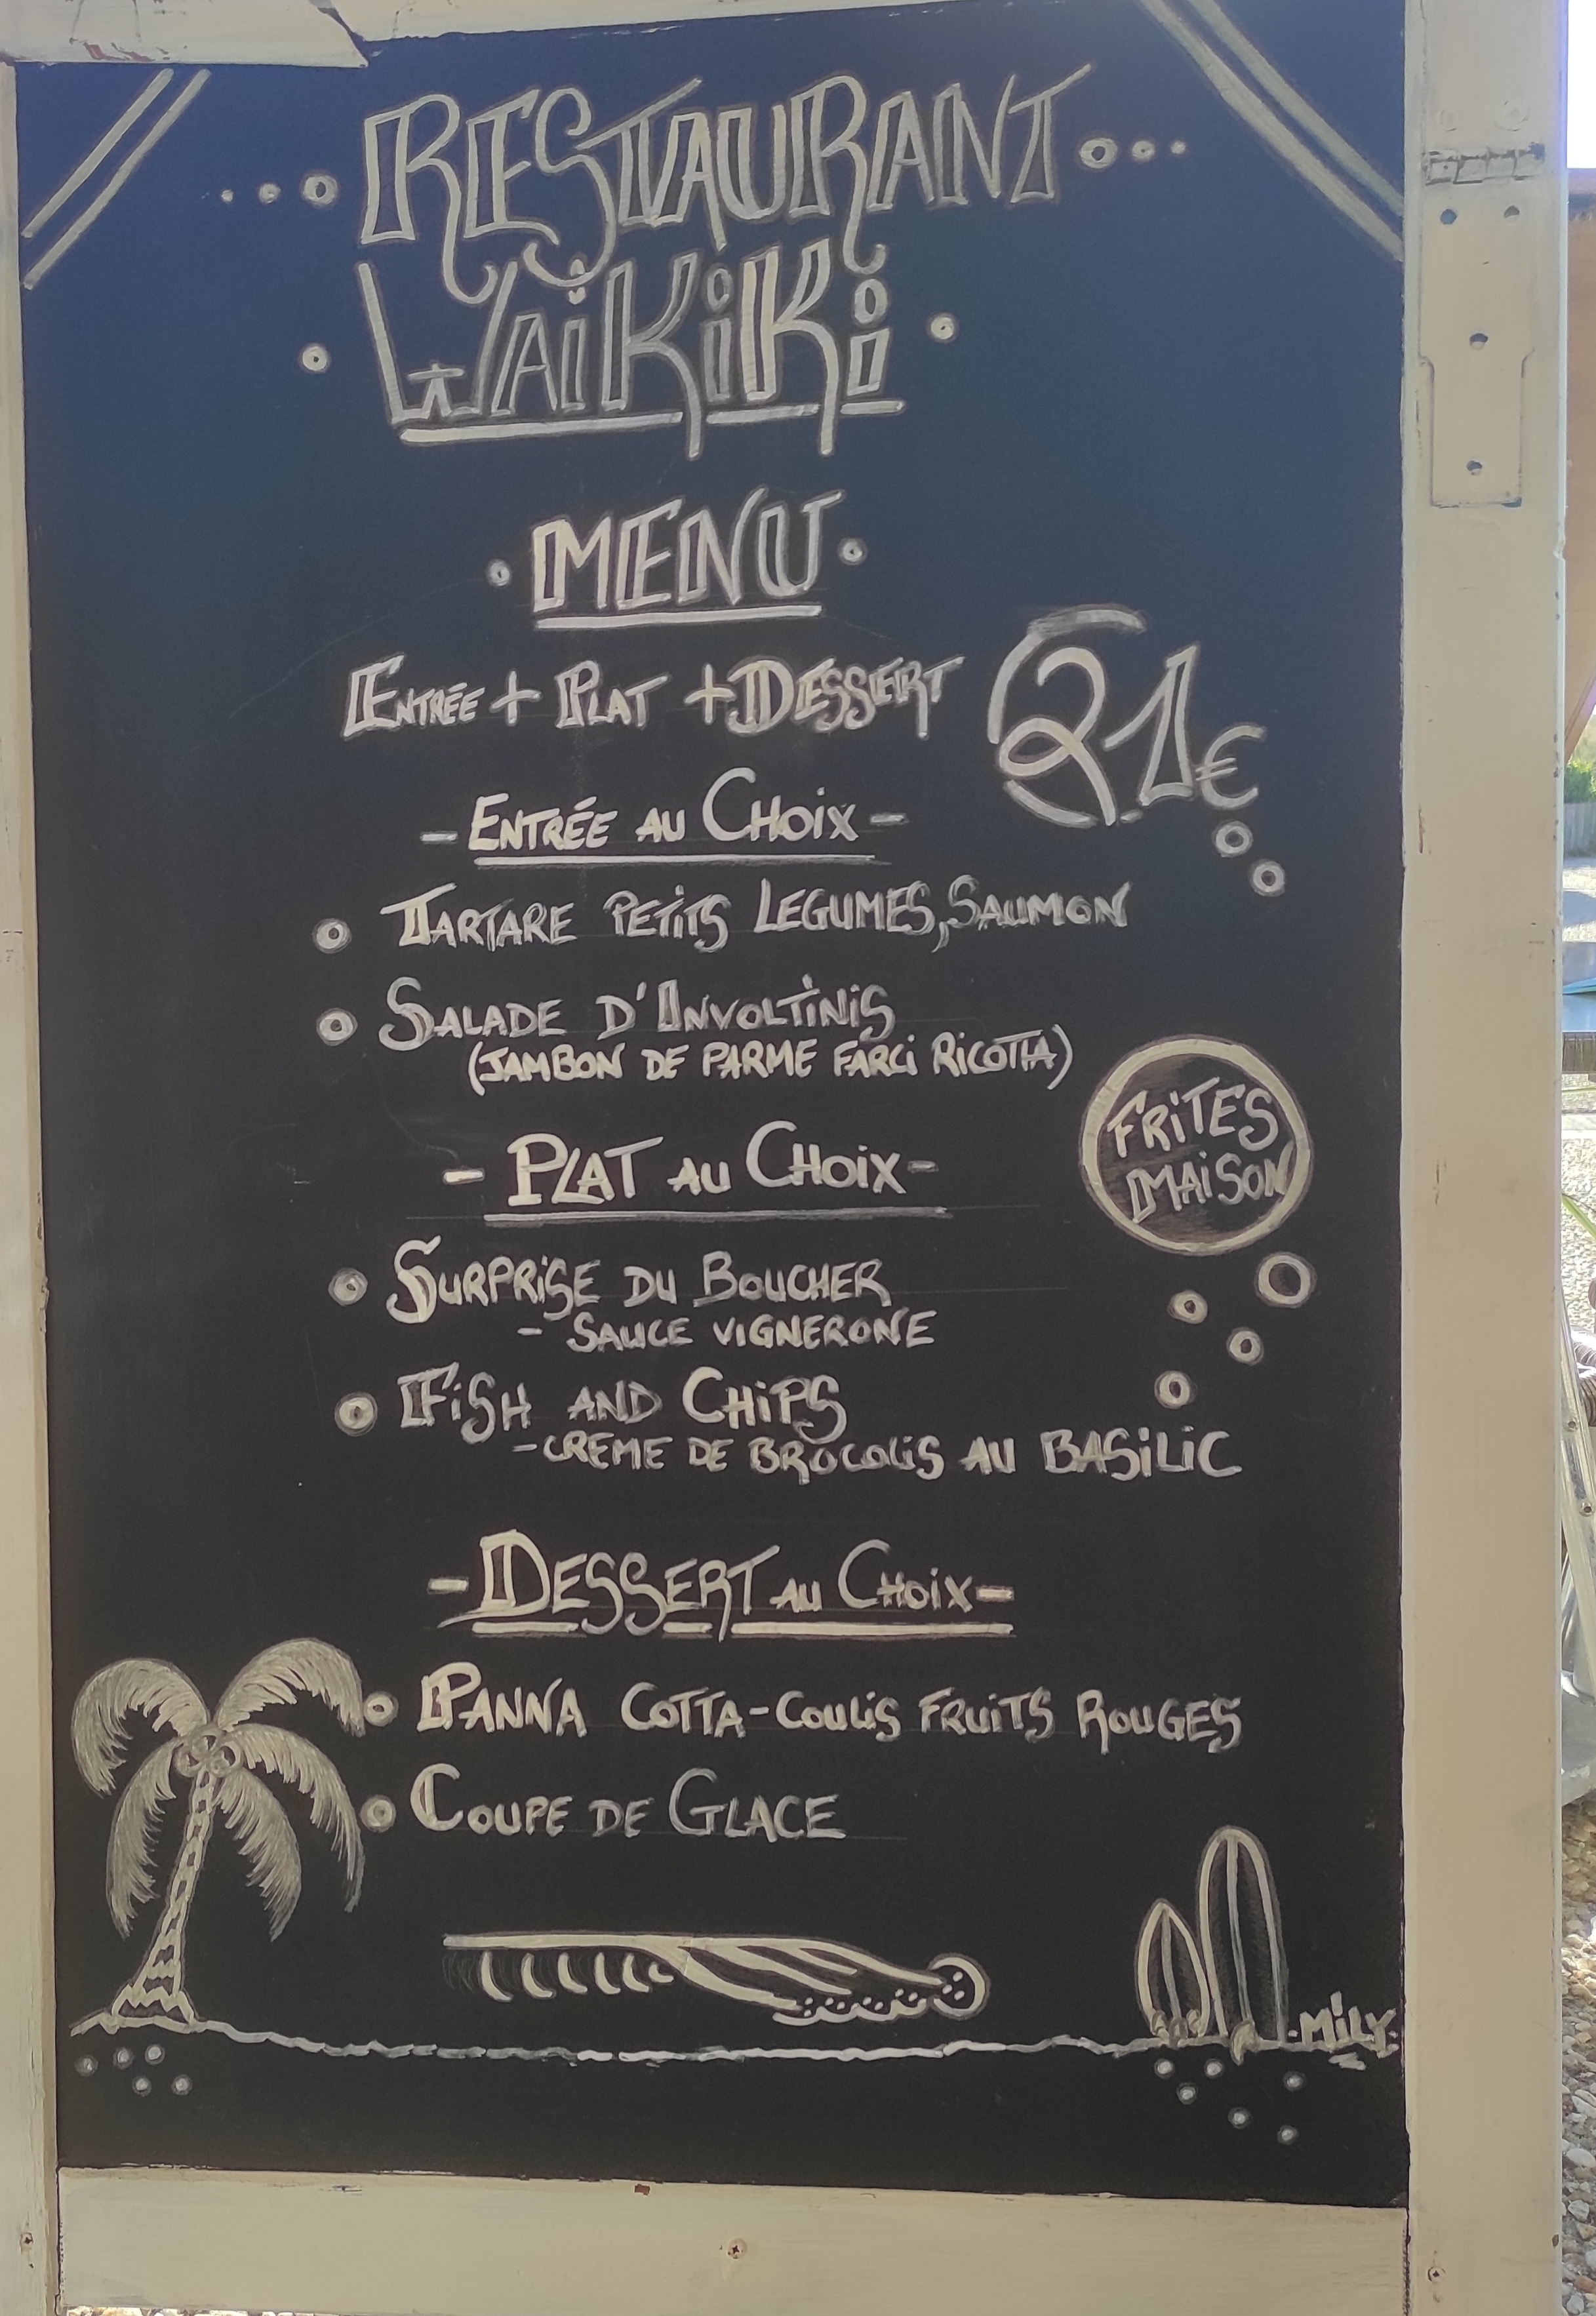 RESTAURANT
WAiKiKi
MENU
ENTRÉE + PLAT + DESSERT 21€
- ENTRÉE AU CHOiX -
TARTARE PETiTS LEGUMES, SAUMON
SALADE D'INVOLTiNiS
(JAMBON DE PARME FARCi RiCOTTA)
FRiTES
MAiSON
- PLAT AU CHOiX -
SURPRiSE DU BOUCHER
- SAUCE ViGNERONE
FiSH AND CHiPS
- CREME DE BROCOLiS AU BASiLiC
- DESSERT AU CHOiX -
PANNA COTTA - COULiS FRUiTS ROUGES
COUPE DE GLACE
- MiLY -